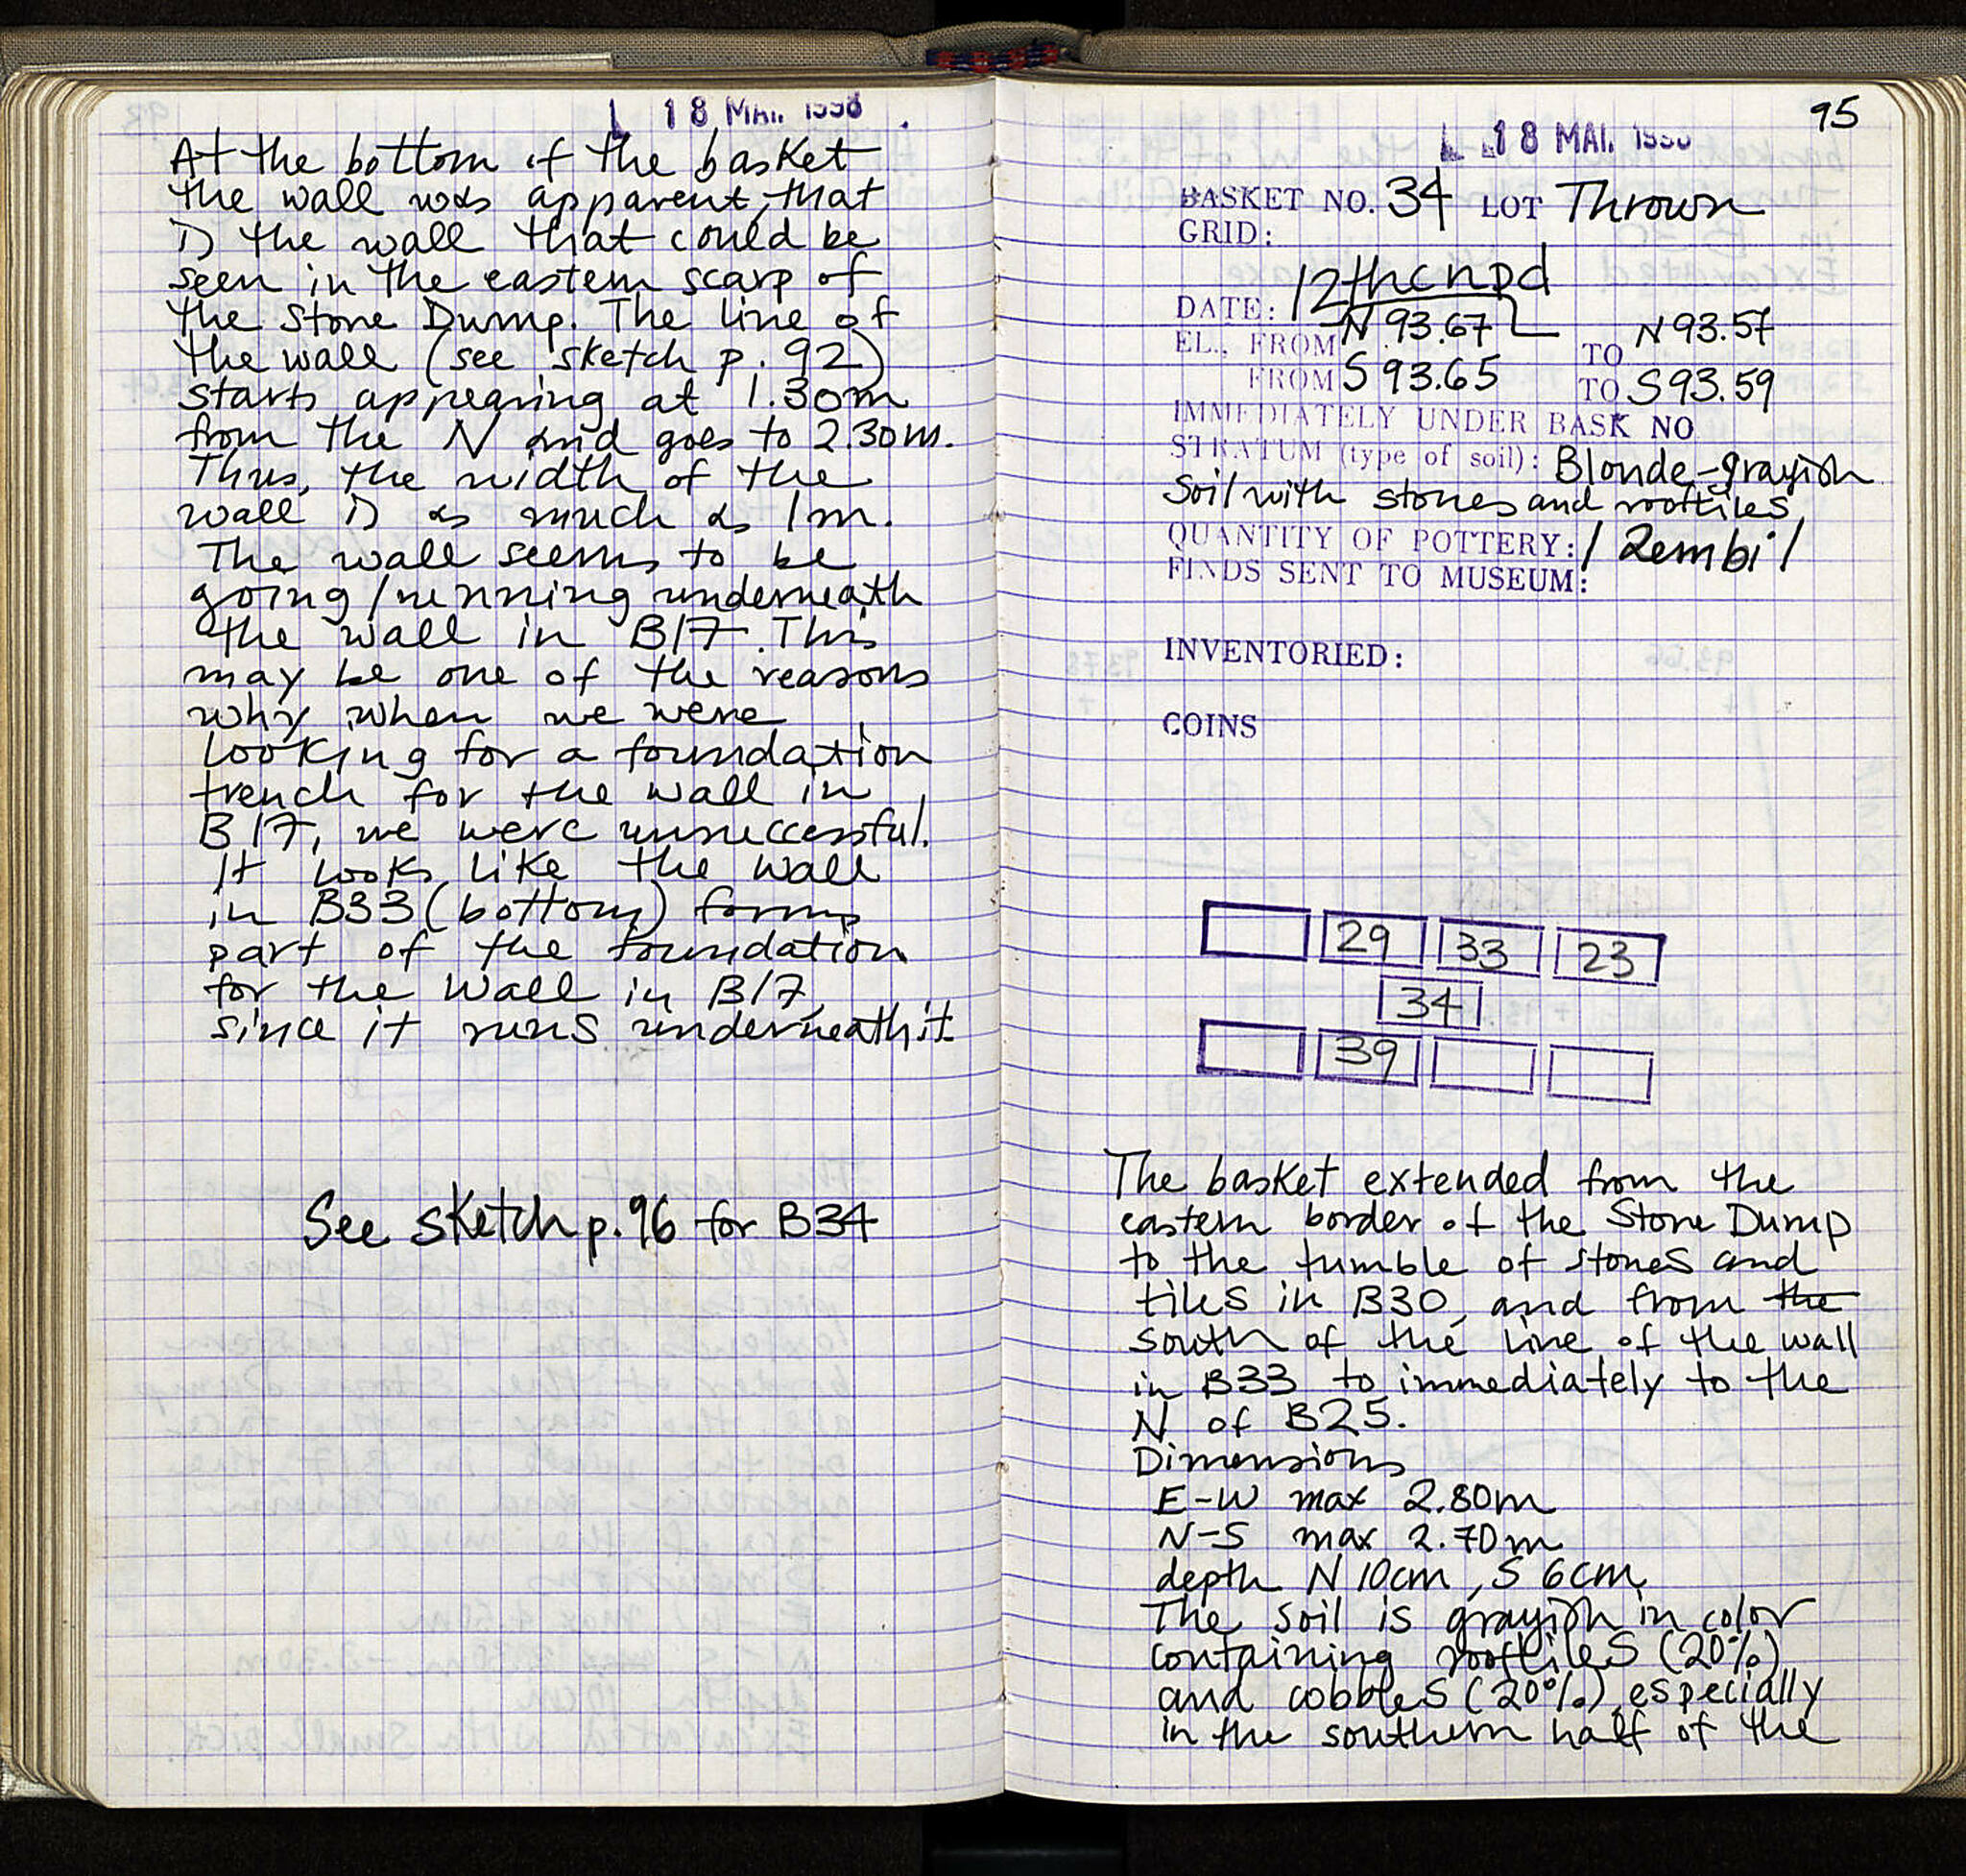 L 18 MAI. 1998
At the bottom of the basket
the wall was apparent, that
is the wall that could be
seen in the eastern scarp of
the Stone Dump. The line of
the wall (see sketch p. 92)
starts appearing at 1.30m
from the N and goes to 2.30m.
Thus, the width of the
wall is as much as 1m.
The wall seems to be
going/running underneath
the wall in B17. This
may be one of the reasons
why when we were
looking for a foundation
trench for the wall in
B17, we were unsuccessful.
It looks like the wall
in B33 (bottom) forms
part of the foundation
for the wall in B17,
since it runs underneath it
See sketch p. 96 for B34
95
L 18 MAI. 1998
BASKET NO. 34 LOT Thrown
GRID:
DATE: 12thcnpd
EL., FROM N 93.67 TO N 93.57
FROM S 93.65 TO S 93.59
IMMEDIATELY UNDER BASK NO
STRATUM (type of soil): Blonde-grayish
soil with stones and rooftiles
QUANTITY OF POTTERY: 1 Zembil
FINDS SENT TO MUSEUM:
INVENTORIED:
COINS
29 33 23
34
39
The basket extended from the
eastern border of the Stone Dump
to the tumble of stones and
tiles in B30, and from the
south of the line of the wall
in B33 to immediately to the
N of B25.
Dimensions
E-W max 2.80m
N-S max 2.70m
depth N 10cm, S 6cm
The soil is grayish in color
containing rooftiles (20%)
and cobbles (20%), especially
in the southern half of the